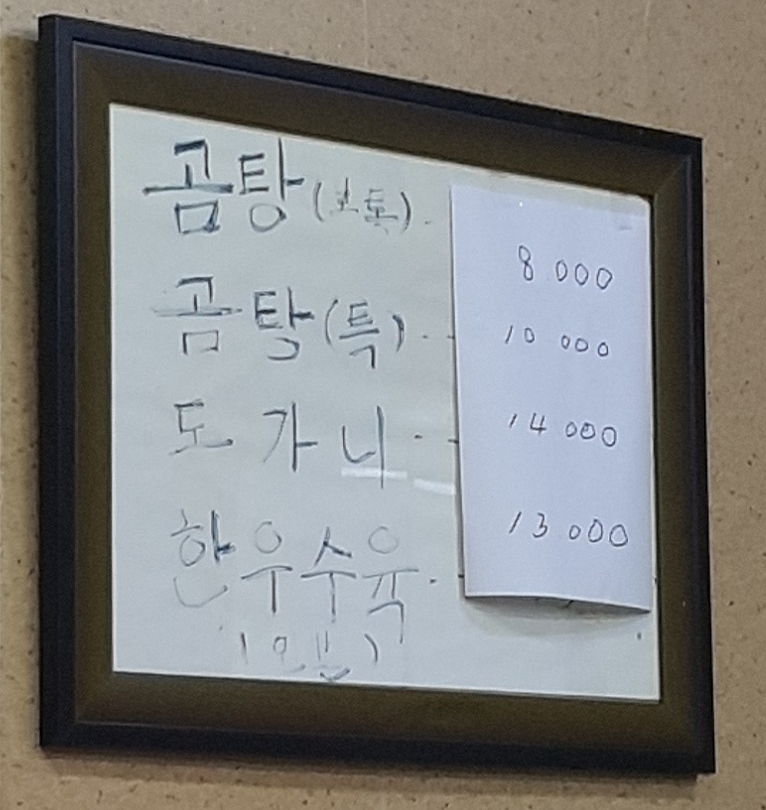 곰탕(보통) 8 000
곰탕(특) 10 000
도가니 14 000
한우수육 13 000